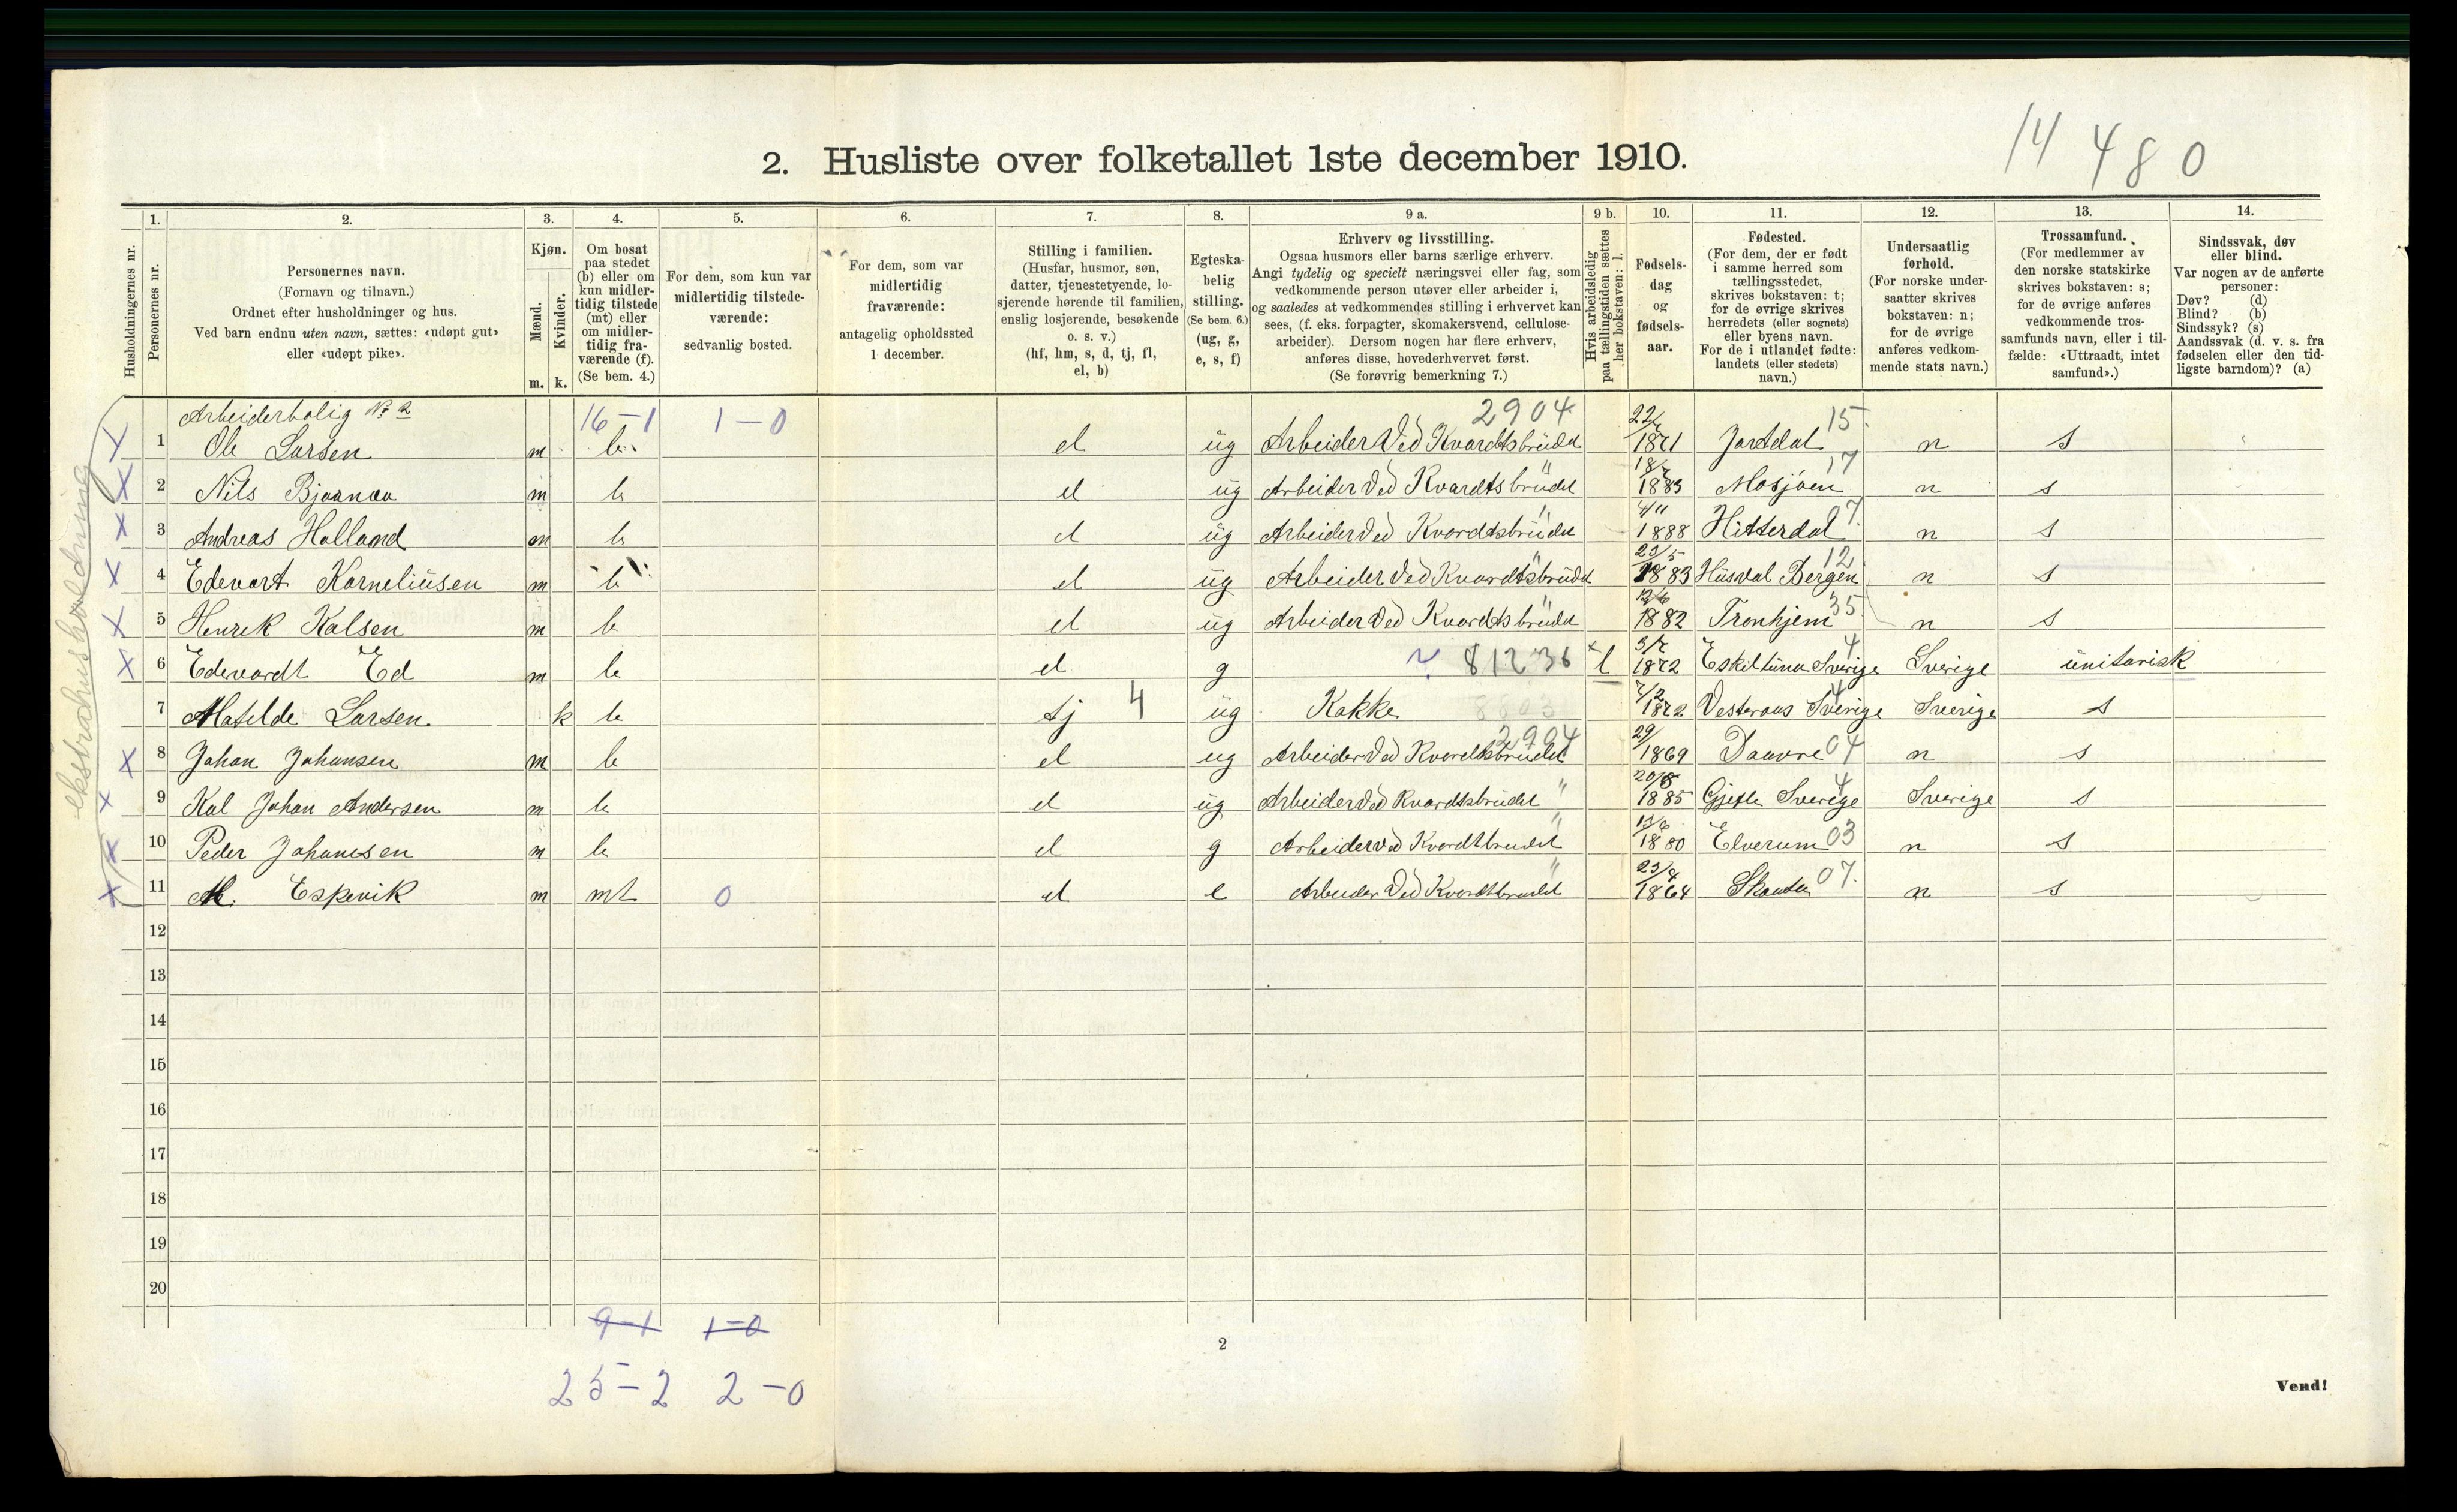 14 480
2. Husliste over folketallet 1ste december 1910.
Husholdningernes nr.
1. Personernes nr.
2. Personernes navn.
(Fornavn og tilnavn.)
Ordnet efter husholdninger og hus.
Ved barn endnu uten navn, sættes: «udøpt gut»
eller «udøpt pike».
3. Kjøn.
Mænd. m.
Kvinder. k.
4. Om bosat
paa stedet
(b) eller om
kun midler-
tidig tilstede
(mt) eller
om midler-
tidig fra-
værende (f).
(Se bem. 4.)
5. For dem, som kun var
midlertidig tilstede-
værende:
sedvanlig bosted.
6. For dem, som var
midlertidig
fraværende:
antagelig opholdssted
1 december.
7. Stilling i familien.
(Husfar, husmor, søn,
datter, tjenestetyende, lo-
sjerende hørende til familien,
enslig losjerende, besøkende
o. s. v.)
(hf, hm, s, d, tj, fl,
el, b)
8. Egteska-
belig
stilling.
(Se bem. 6.)
(ug, g,
e, s, f)
9 a. Erhverv og livsstilling.
Ogsaa husmors eller barns særlige erhverv.
Angi tydelig og specielt næringsvei eller fag, som
vedkommende person utøver eller arbeider i,
og saaledes at vedkommendes stilling i erhvervet kan
sees, (f. eks. forpagter, skomakersvend, cellulose-
arbeider). Dersom nogen har flere erhverv,
anføres disse, hovederhvervet først.
(Se forøvrig bemerkning 7.)
9 b. Hvis arbeidsledig
paa tællingstiden sættes
her bokstaven: l.
10. Fødsels-
dag
og
fødsels-
aar.
11. Fødested.
(For dem, der er født
i samme herred som
tællingsstedet,
skrives bokstaven: t;
for de øvrige skrives
herredets (eller sognets)
eller byens navn.
For de i utlandet fødte:
landets (eller stedets)
navn.)
12. Undersaatlig
forhold.
(For norske under-
saatter skrives
bokstaven: n;
for de øvrige
anføres vedkom-
mende stats navn.)
13. Trossamfund.
(For medlemmer av
den norske statskirke
skrives bokstaven: s;
for de øvrige anføres
vedkommende tros-
samfunds navn, eller i til-
fælde: «Uttraadt, intet
samfund».)
14. Sindssvak, døv
eller blind.
Var nogen av de anførte
personer:
Døv? (d)
Blind? (b)
Sindssyk? (s)
Aandssvak (d. v. s. fra
fødselen eller den tid-
ligste barndom)? (a)
ekstrahusholdning
Arbeiderbolig No 2 16-1 1-0 2904 15
X 1 Ole Larsen m b el ug Arbeider Ved Kvardtsbrudet 1871 n s
X 2 Nils m b el ug Arbeider Ved Kvardtsbrudet 1883 Mosjøen 17 n s
X 3 Andreas Holland m b el ug Arbeider Ved Kvardtsbrudet 1888 Hitterdal 7 n s
X 4 Edevart Korneliusen m b el ug Arbeider Ved Kvardtsbrudet 23/5 1883 Bergen 12 n s
X 5 Henrik Kalsen m b el ug Arbeider Ved Kvardtsbrudet 1882 Tronhjem 35 n s
X 6 Edevardt Ed m b el g 81236 l 3/7 1872 Eskiltuna Sverige 4 Sverige unitarisk
7 Matelde Larsen k b tj 4 ug Kokke 7/2 1872 Vesteraas Sverige 4 Sverige s
X 8 Johan Johansen m b el ug Arbeider Ved Kvardtsbrudet 2904 29/ 1869 Daavre 04 n s
X 9 Kal Johan Andersen m b el ug Arbeider Ved Kvardtsbrudet " 20/8 1885 Gjefle Sverige 4 Sverige s
X 10 Peder Johansen m b el g Arbeider ved Kvardtbrudet " 1880 Elverum 03 n s
X 11 M. Espevik m mt 0 el e Arbeider Ved Kvardtbrudet " 23/4 1864 07 n s
12
13
14
15
16
17
18
19
20
9-1 1-0
25-2 2-0
2
Vend!